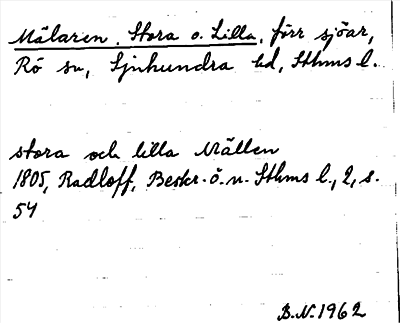 Mälaren, Stora o. Lilla, förr sjöar,
Rö sn, Sjuhundra hd, Sthms l.
stora och lilla Mällen
1805, Radloff, Beskr. ö. n. Sthms l., 2, s.
54
B.N. 1962